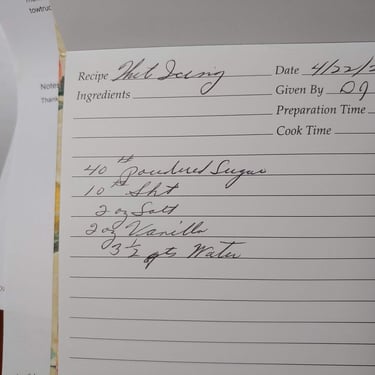 towtruc
Notes
Than
Recipe Wht Icing Date 4/22/2
Ingredients Given By DJ
Preparation Time
Cook Time
40 # Powdered Sugar
10 # Sht
2 oz Salt
2 oz Vanilla
3 1/2 qts Water